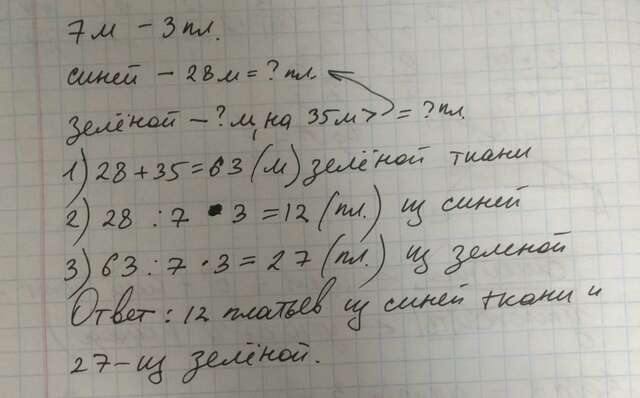 7м - 3 пл.
синей - 28 м = ? пл.
зелёной - ? м, на 35 м > = ? пл.
1) 28 + 35 = 63 (м) зелёной ткани
2) 28 : 7 · 3 = 12 (пл.) из синей
3) 63 : 7 · 3 = 27 (пл.) из зеленой
Ответ: 12 платьев из синей ткани и
27 - из зелёной.